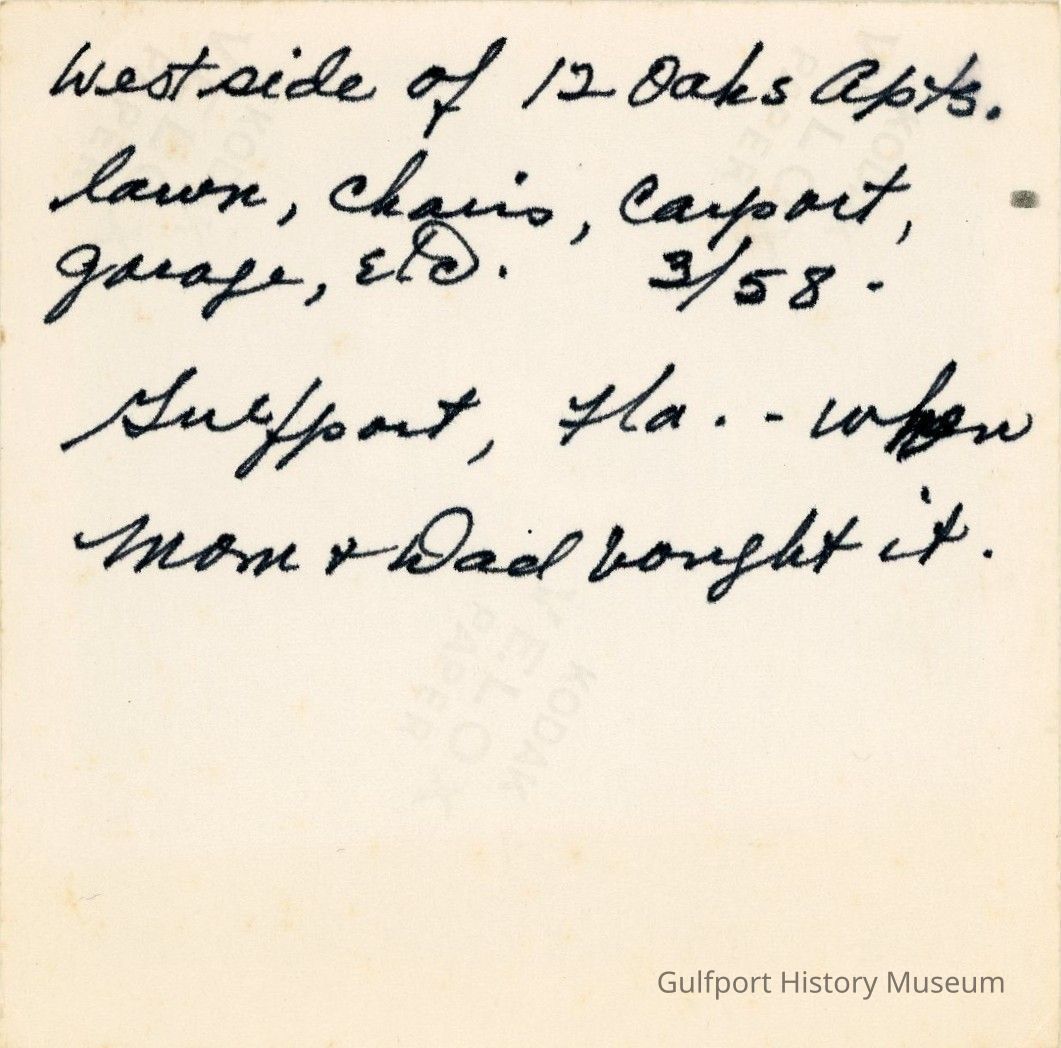 West side of 12 Oaks Apts.
lawn, chairs, carport,
garage, etc. 3/58.
Gulfport, Fla. - when
Mom & Dad bought it.
KODAK
VELOX
PAPER
Gulfport History Museum